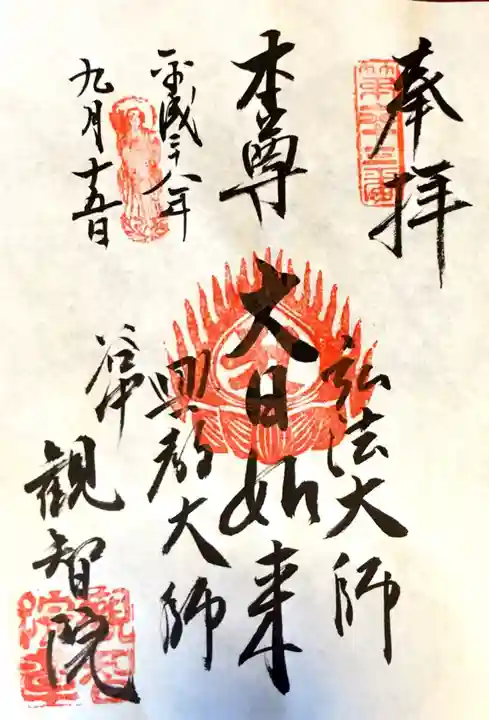 奉拝
本尊
弘法大師
大日如来
興教大師
平成二十八年
九月十五日
谷中
観智院